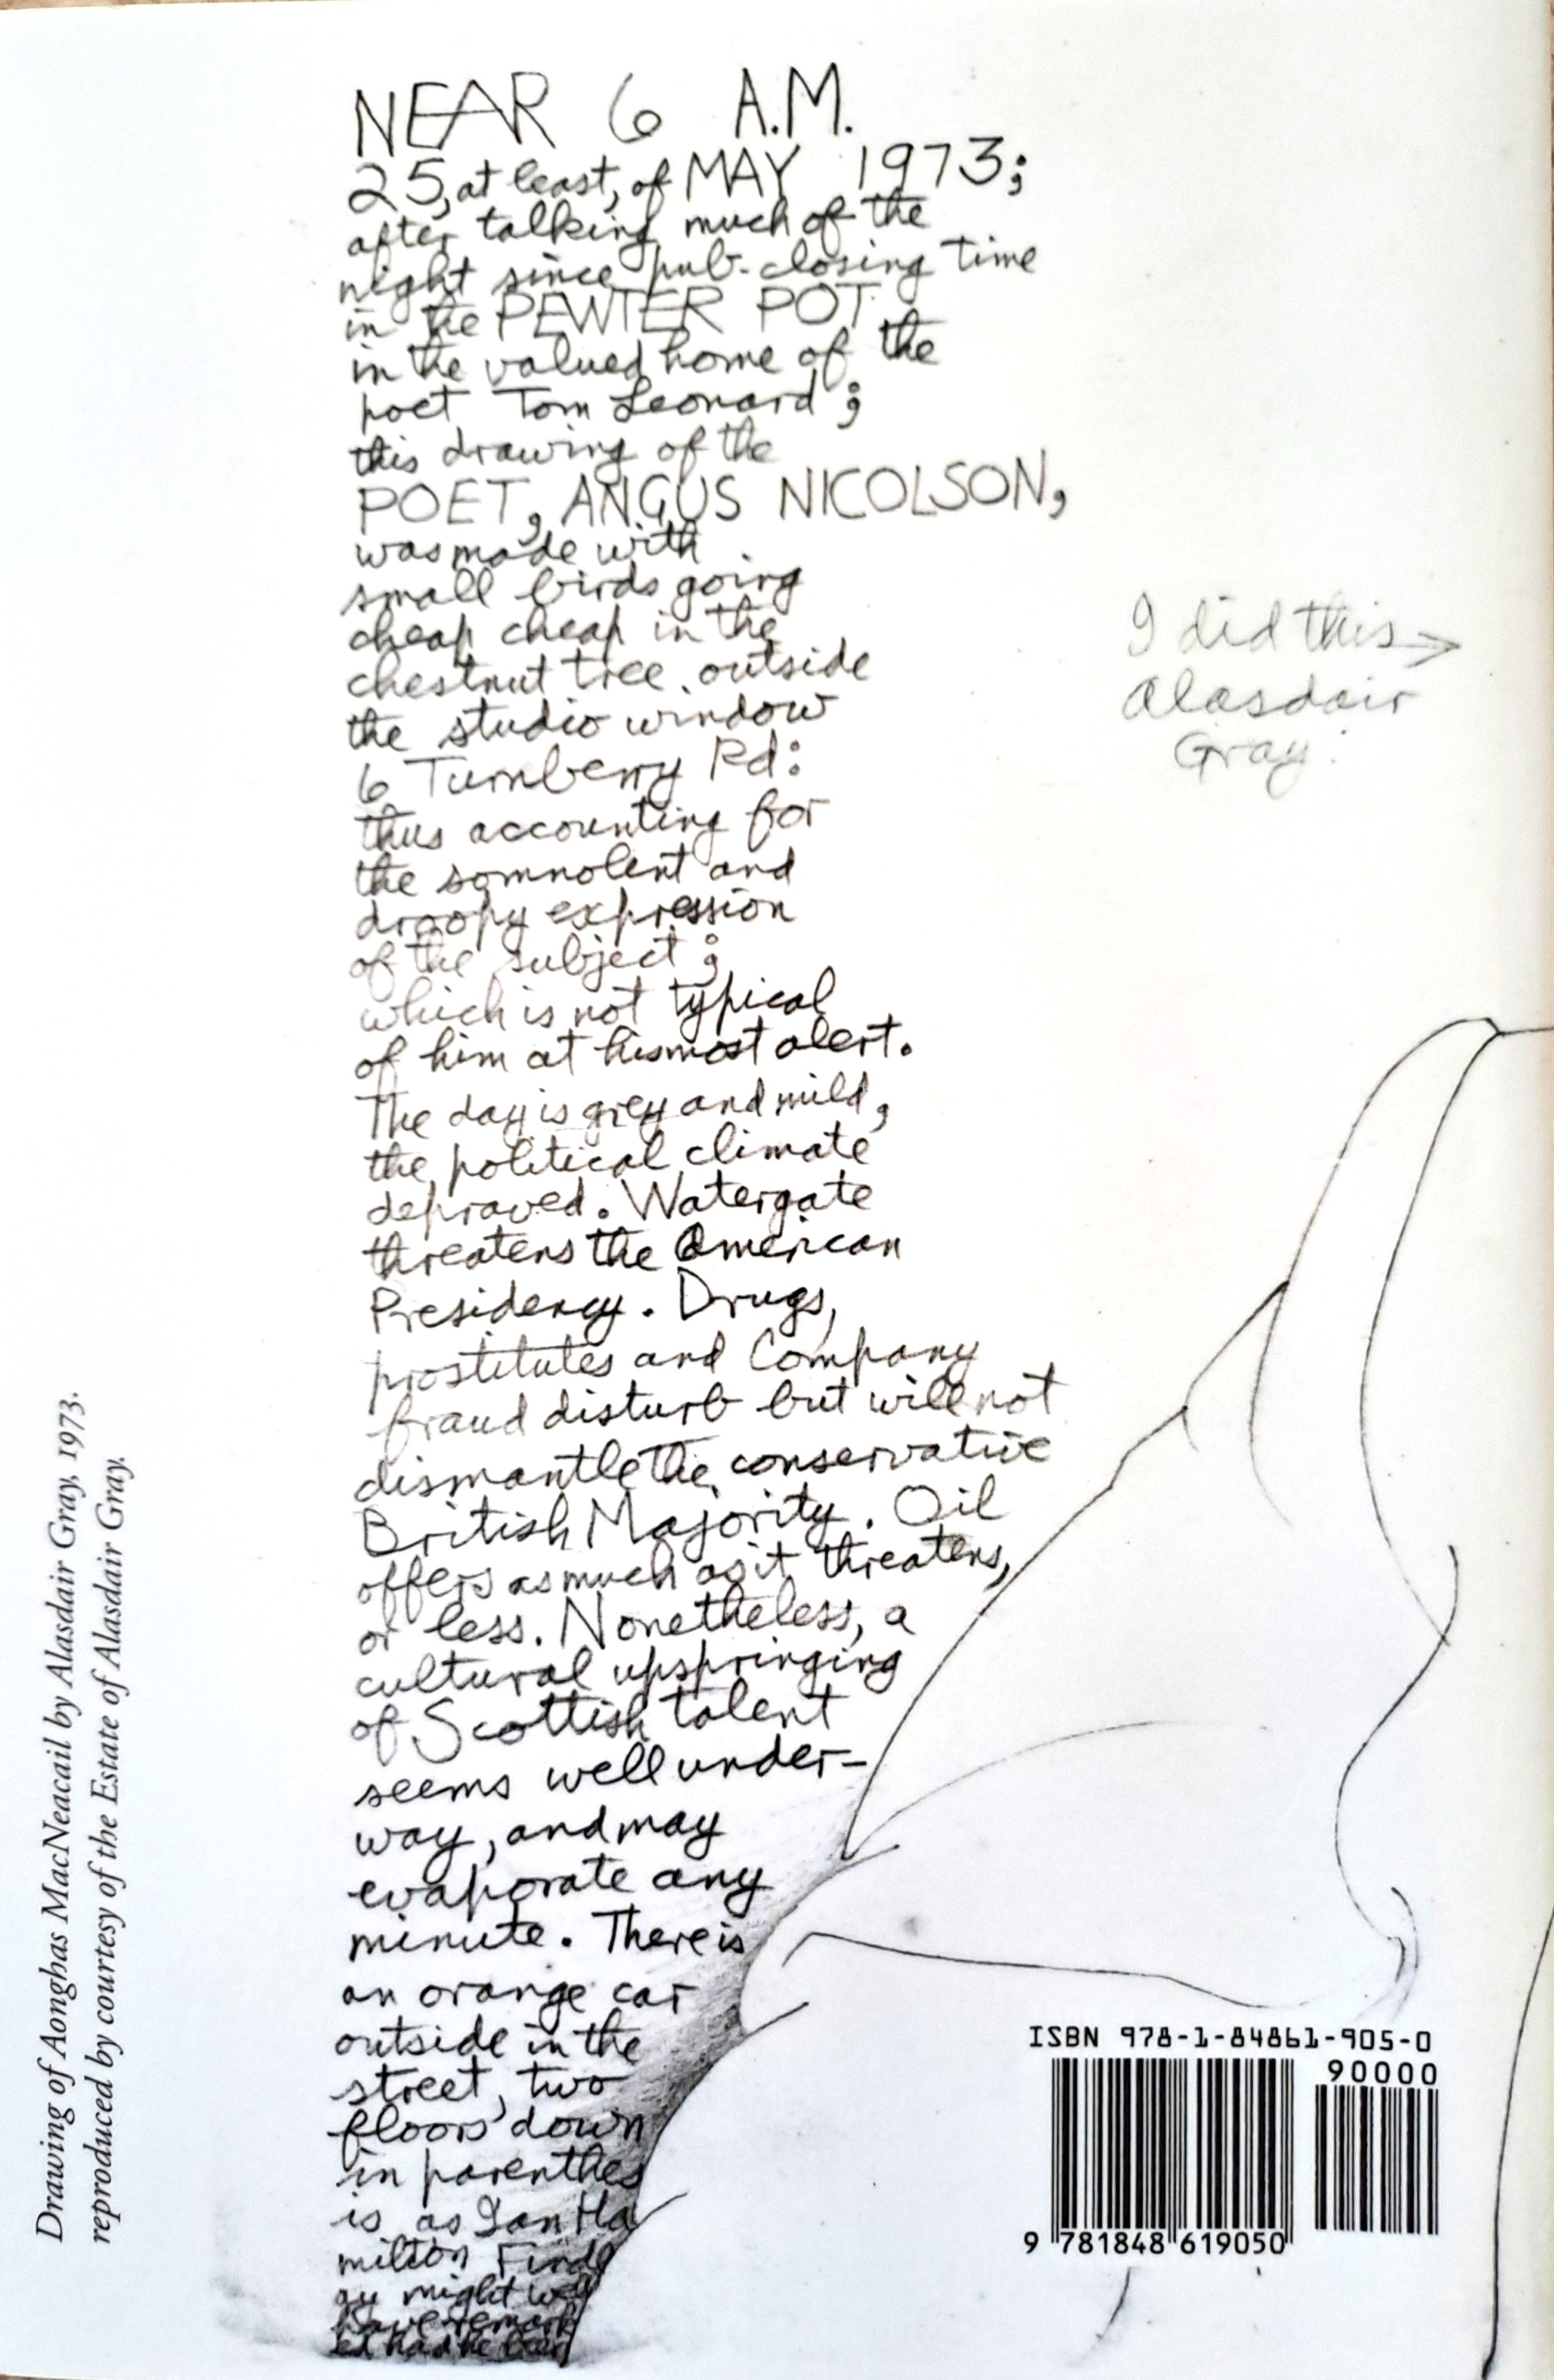 NEAR 6 A.M.
25, at least, of MAY 1973;
after talking much of the
night since pub-closing time
in the PEWTER POT
in the valued home of the
poet Tom Leonard;
this drawing of the
POET, ANGUS NICOLSON,
was made with
small birds going
cheap cheap in the
chestnut tree outside
the studio window
6 Turnberry Rd:
thus accounting for
the somnolent and
droopy expression
of the subject;
which is not typical
of him at his most alert.
The day is grey and mild,
the political climate
depraved. Watergate
threatens the American
Presidency. Drugs,
prostitutes and Company
fraud disturb but will not
dismantle the conservative
British Majority. Oil
offers as much as it threatens,
or less. Nonetheless, a
cultural upspringing
of Scottish talent
seems well under-
way, and may
evaporate any
minute. There is
an orange car
outside in the
street, two
floors down
in parenthes
is as Ian Ha
milton Finla
gy might well
have remark
ed had he been
I did this →
Alasdair
Gray.
Drawing of Aonghas MacNeacail by Alasdair Gray, 1973.
reproduced by courtesy of the Estate of Alasdair Gray.
ISBN 978-1-84861-905-0
90000
9 781848 619050